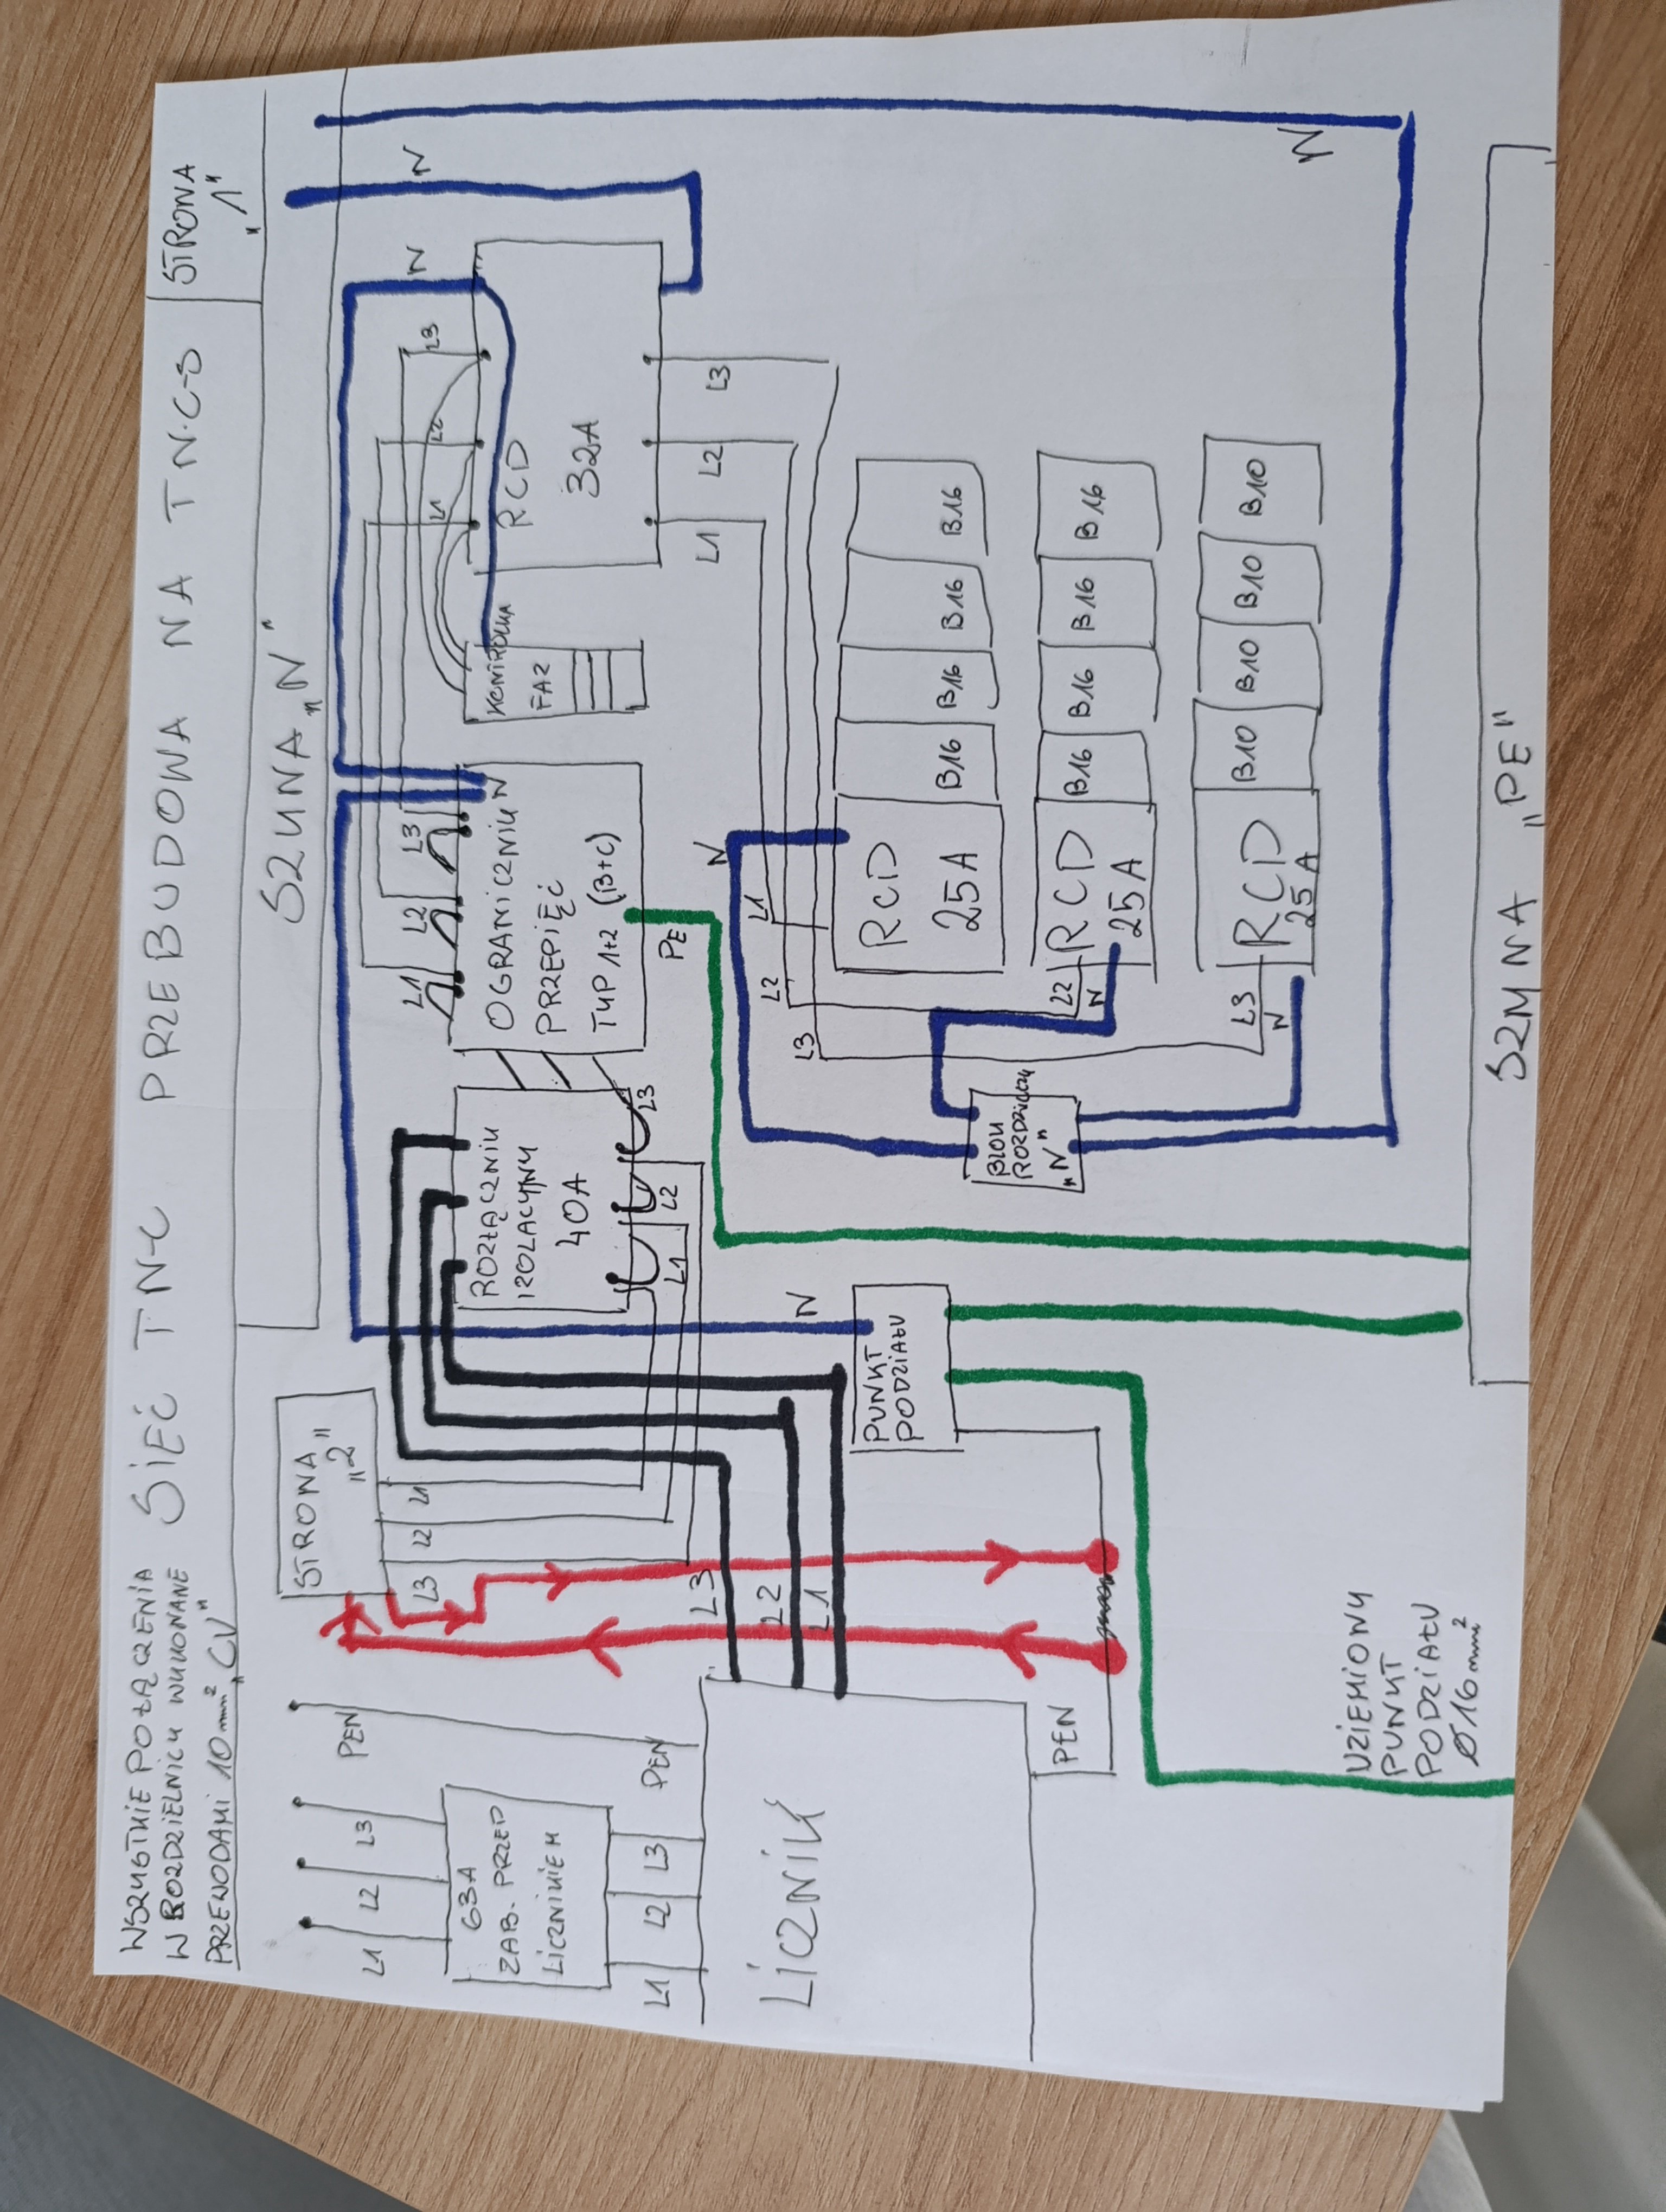 WSZYSTKIE POŁĄCZENIA
W ROZDZIELNICY WYKONANE
PRZEWODAMI 10mm² „CU”
SIEĆ TN-C PRZEBUDOWA NA TN-C-S
STRONA
„1”
SZYNA „N”
STRONA
„2”
L1 L2 L3 PEN
63A
ZAB. PRZED
LICZNIKIEM
L1 L2 L3 PEN
LICZNIK
PEN
L3
L2
L1
L3 L2 L1
ROZŁĄCZNIK
IZOLACYJNY
40A
L1 L2 L3
L1 L2 L3 N
OGRANICZNIK
PRZEPIĘĆ
TYP 1+2 (B+C)
PE
KONTROLKA
FAZ
L1 L2 L3 N
RCD
32A
L1 L2 L3
N
N
N
PUNKT
PODZIAŁU
N
L3 L2 L1
RCD
25A
B16 B16 B16 B16
L2
N
RCD
25A
B16 B16 B16 B16
L3
N
RCD
25A
B10 B10 B10 B10
BLOK
ROZDZIELCZY
„N”
UZIEMIONY
PUNKT
PODZIAŁU
Ø16mm²
SZYNA „PE”